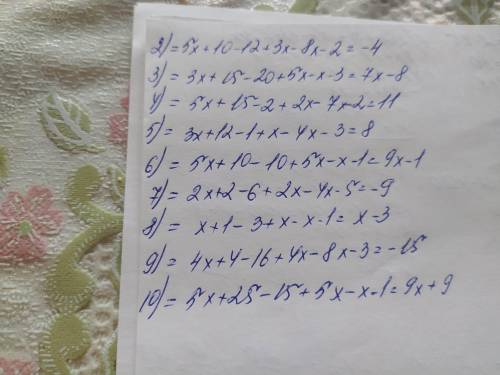 2) = 5x+10-12+3x-8x-2 = -4
3) = 3x+15-20+5x-x-3 = 7x-8
4) = 5x+15-2+2x-7x-2 = 11
5) = 3x+12-1+x-4x-3 = 8
6) = 5x+10-10+5x-x-1 = 9x-1
7) = 2x+2-6+2x-4x-5 = -9
8) = x+1-3+x-x-1 = x-3
9) = 4x+4-16+4x-8x-3 = -15
10) = 5x+25-15+5x-x-1 = 9x+9